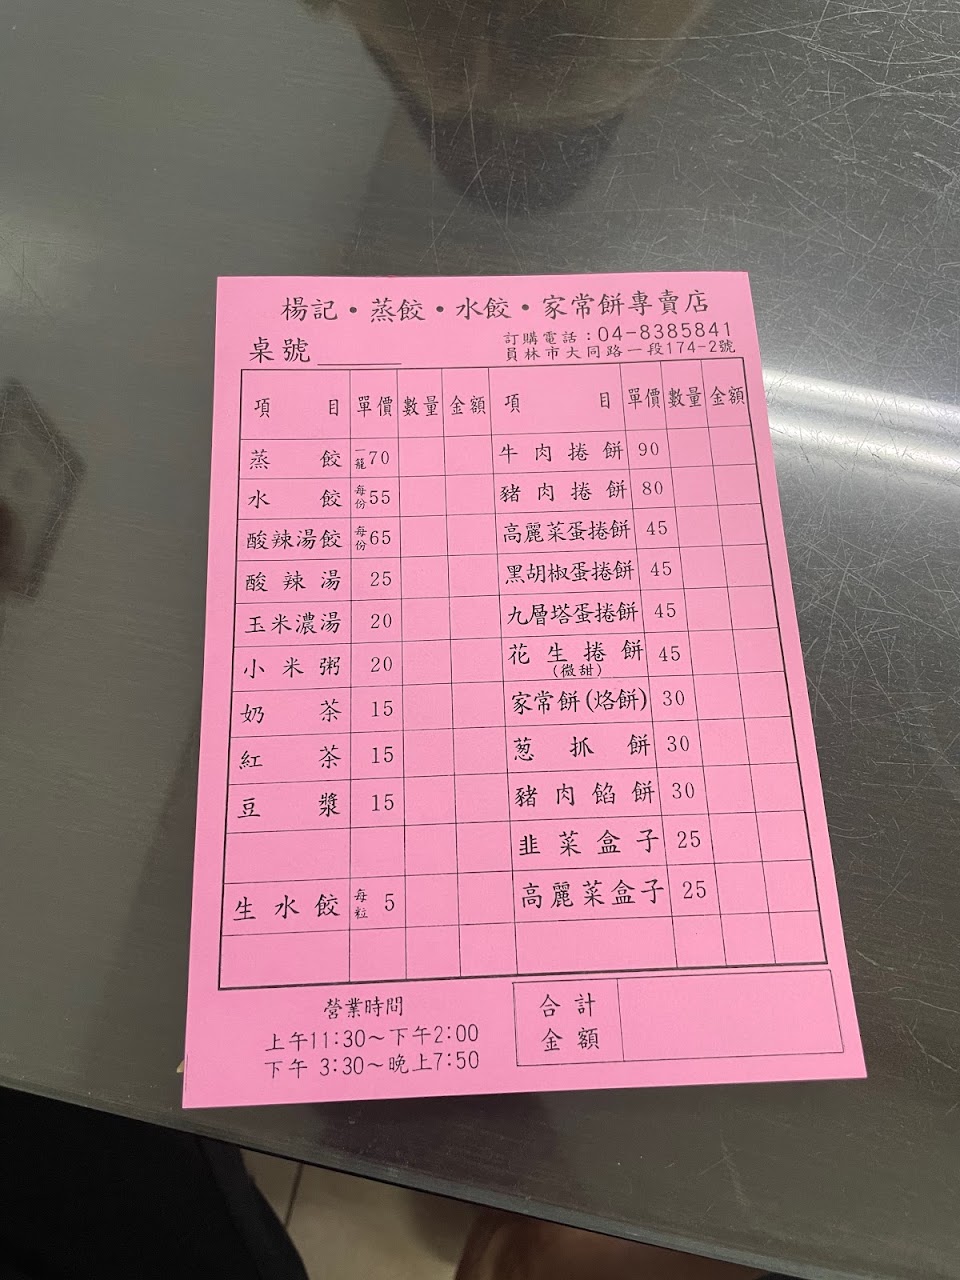 楊記·蒸餃·水餃·家常餅專賣店
桌號
訂購電話：04-8385841
員林市大同路一段174-2號
項目 單價 數量 金額 項目 單價 數量 金額
蒸餃 一籠70 牛肉捲餅 90
水餃 每份55 豬肉捲餅 80
酸辣湯餃 每份65 高麗菜蛋捲餅 45
酸辣湯 25 黑胡椒蛋捲餅 45
玉米濃湯 20 九層塔蛋捲餅 45
小米粥 20 花生捲餅(微甜) 45
奶茶 15 家常餅(烙餅) 30
紅茶 15 葱抓餅 30
豆漿 15 豬肉餡餅 30
韭菜盒子 25
生水餃 每粒5 高麗菜盒子 25
營業時間
上午11:30～下午2:00
下午 3:30～晚上7:50
合計
金額